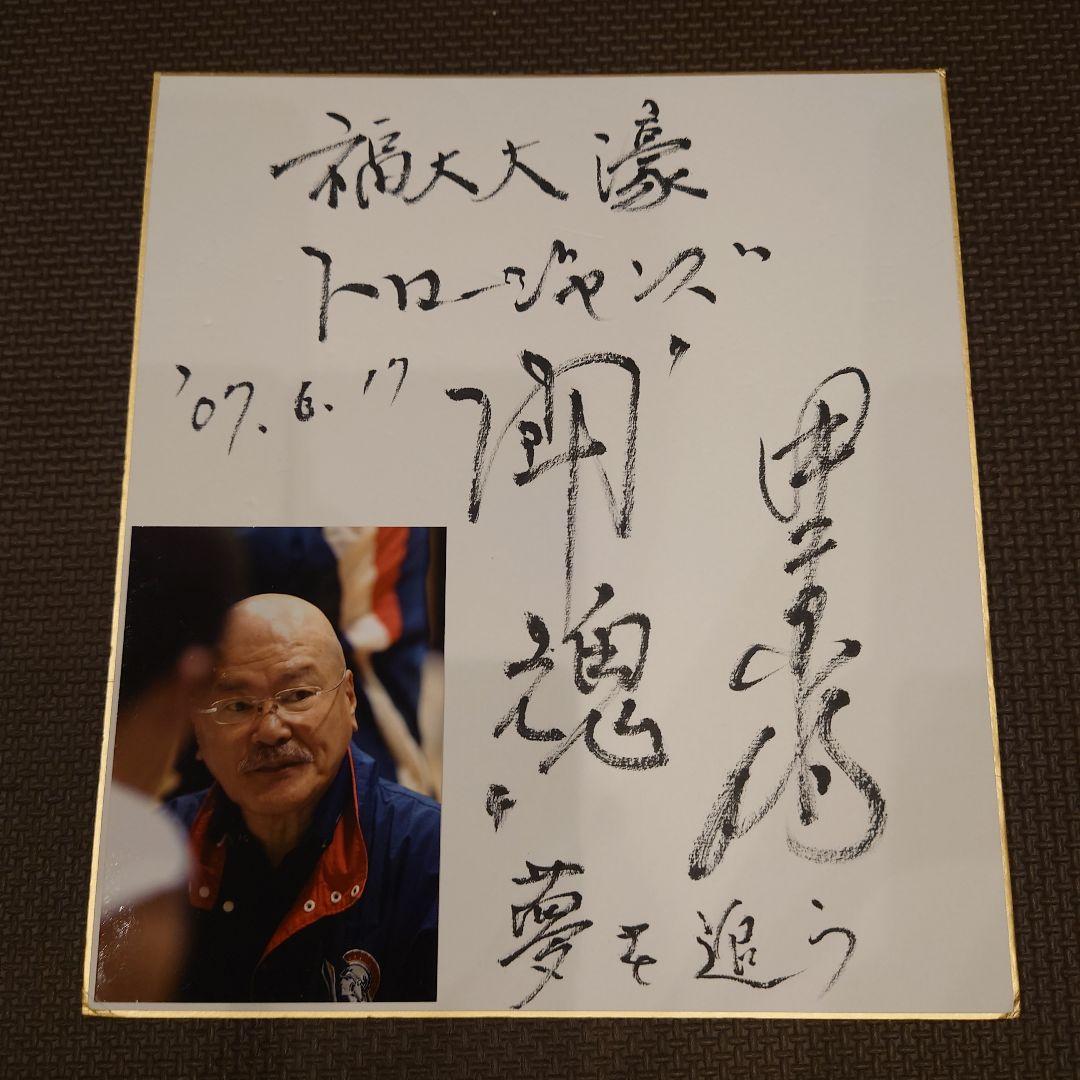 福大大濠
トロージャンズ
'07.6.17
"闘魂"
夢を追う